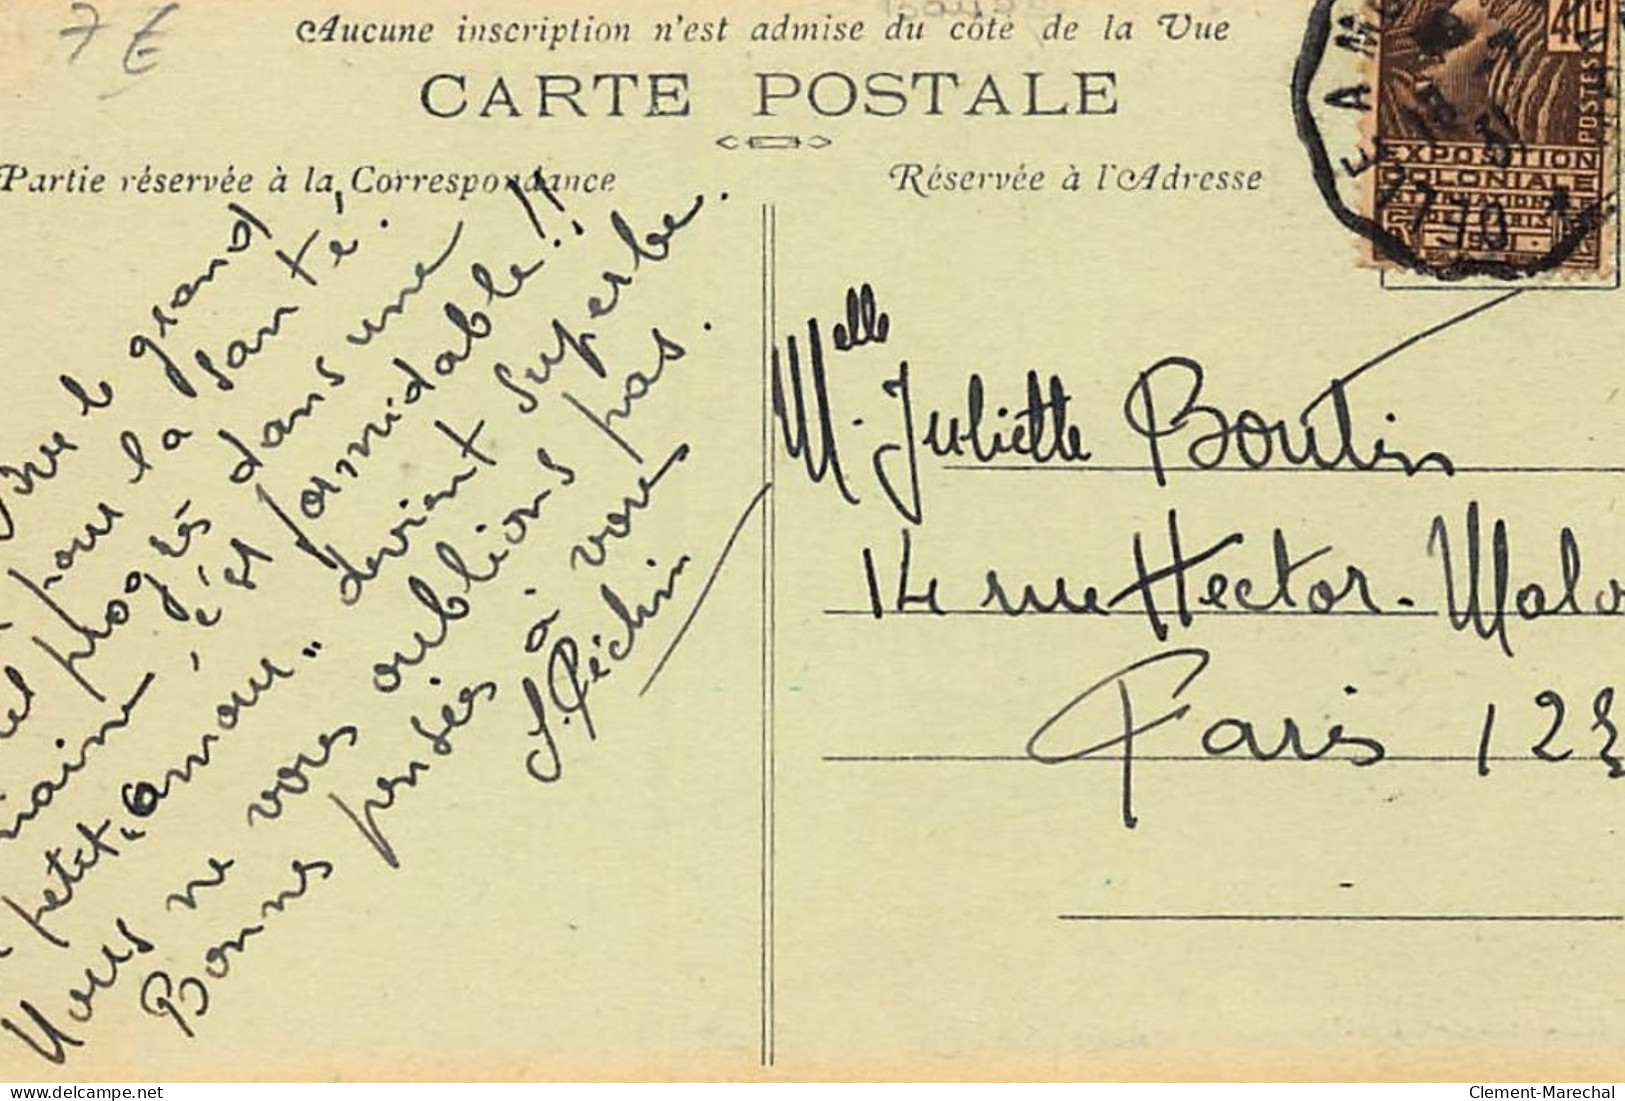 7 €
Aucune inscription n'est admise du côté de la Vue
CARTE POSTALE
Partie réservée à la Correspondance
Réservée à l'Adresse
40c
POSTES
EXPOSITION
COLONIALE
INTERNATIONALE
DE PARIS
1931
le grand
pour la santé.
progrès dans une
c'est formidable!!
petit "amour" devient superbe.
Nous ne vous oublions pas.
Bonnes pensées à vous
J. Péchin
Melle Juliette Boutin
14 rue Hector-Malo
Paris 12E
delcampe.net
Clement-Marechal